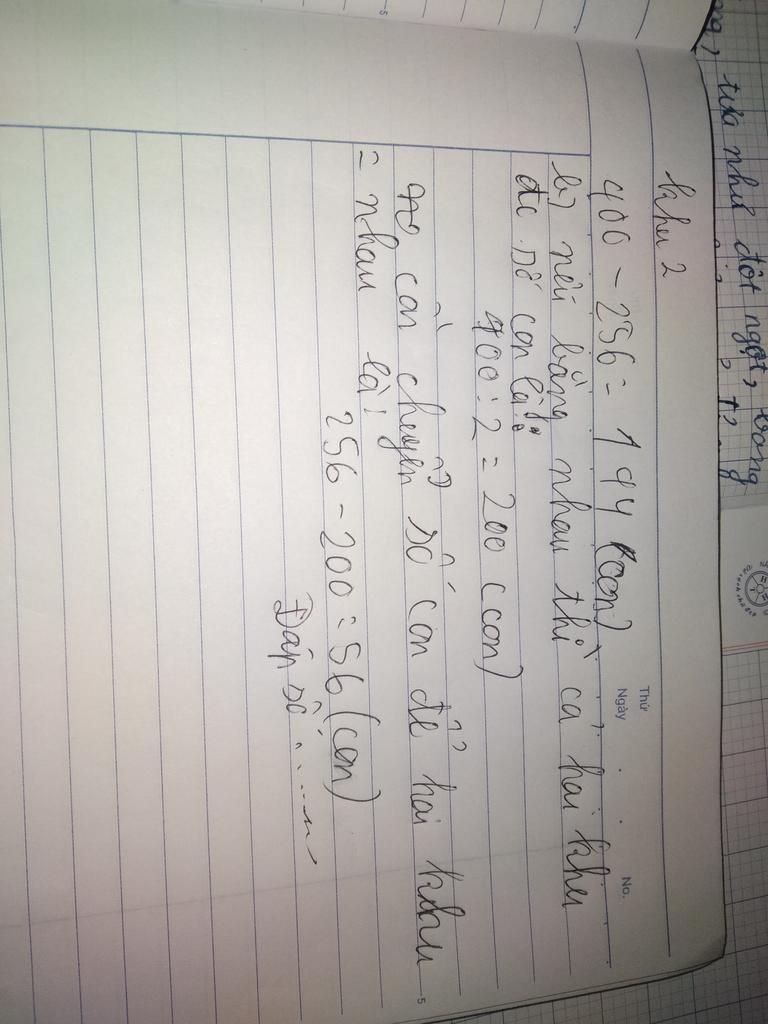 tựa như đột ngột, trong
Thứ
Ngày
No.
khu 2
400 - 256 = 144 (con)
b) nếu bằng nhau thì cả hai khu
đc số con là:
400 : 2 = 200 (con)
cần chuyển số con để hai khu
= nhau là:
256 - 200 = 56 (con)
Đáp số .......
5
5